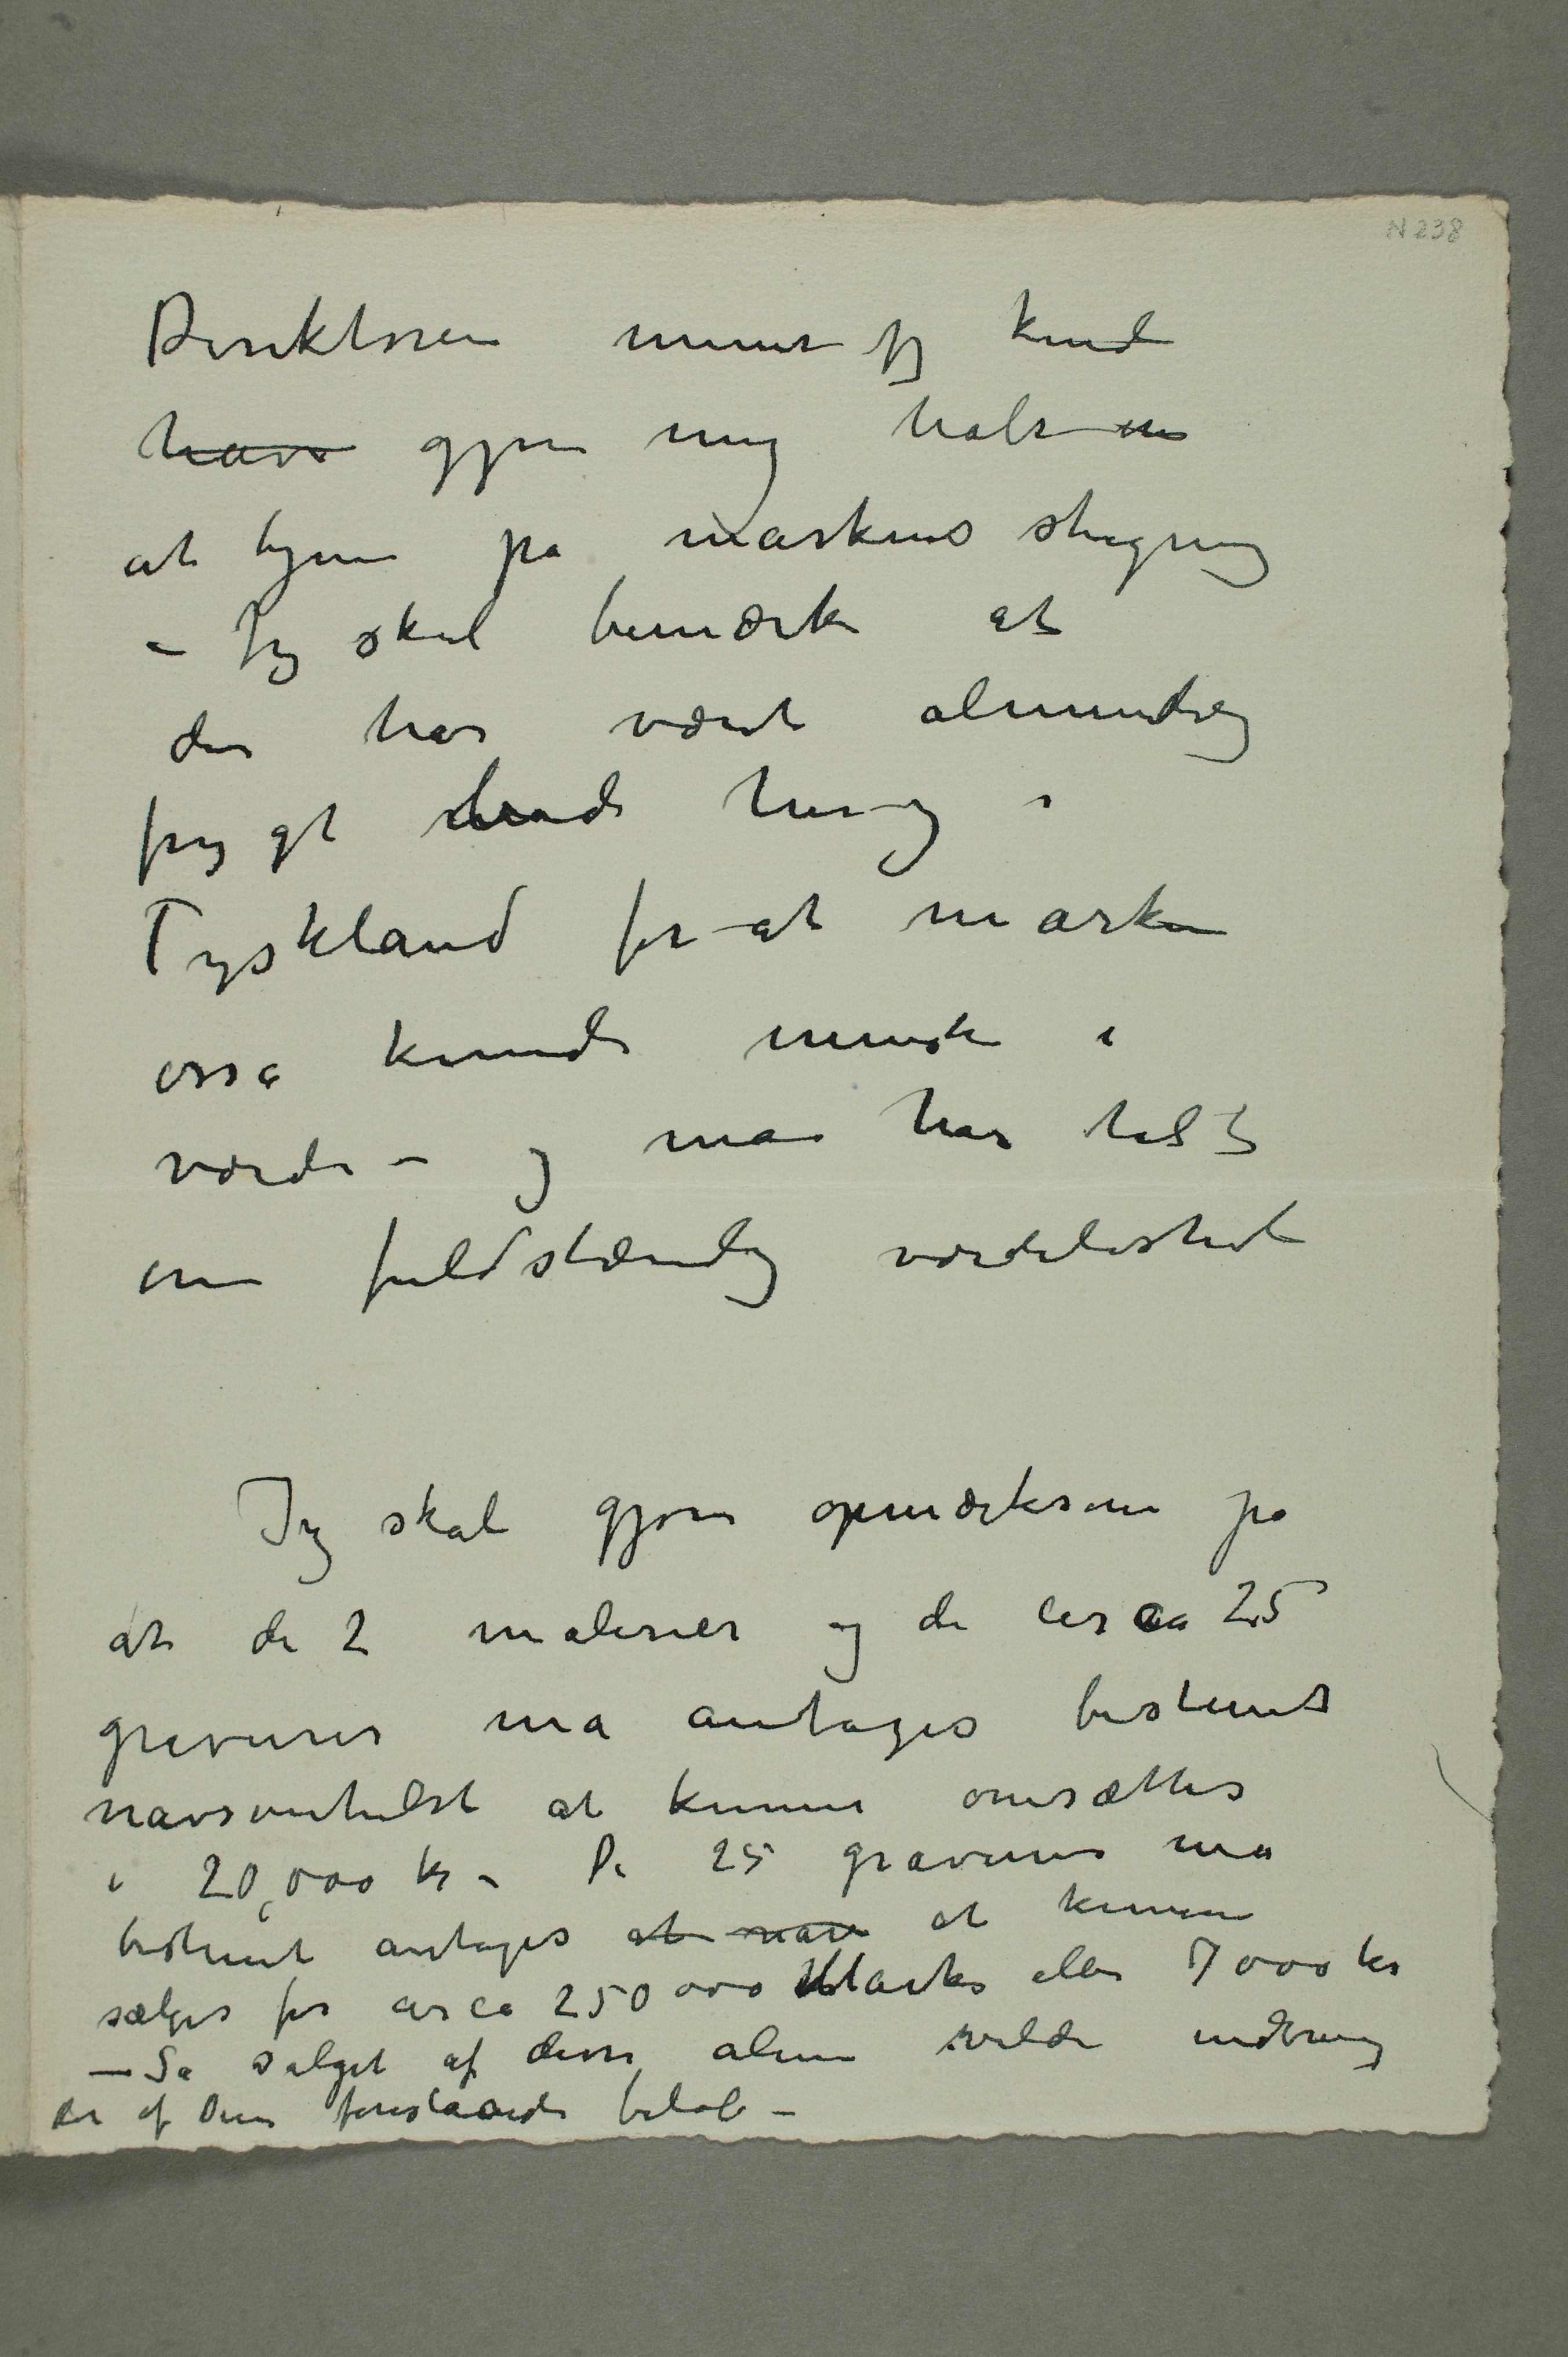 N 238
Direktøren mener jeg kunde
have gjøre mig håb om
at tjene på markens stigning
– Jeg skal bemærke at
der har været almindelig
frygt både her og i
Tyskland for at marken
osså kunde miste i
værdi – og man har talt
om fuldstændig værdiløshet
Jeg skal gjøre opmærksom på
at de 2 malerier og de circa 25
gravurer må antages bestemt
nårsomhelst at kunne omsættes
i 20,000 kr – De 25 gravurer må
bestemt antages at når at kunne
sælges for circa 250000 Mark eller 7000 kr
– Så salget af disse alene vilde indbringe
det af Dem foreslåede beløb –